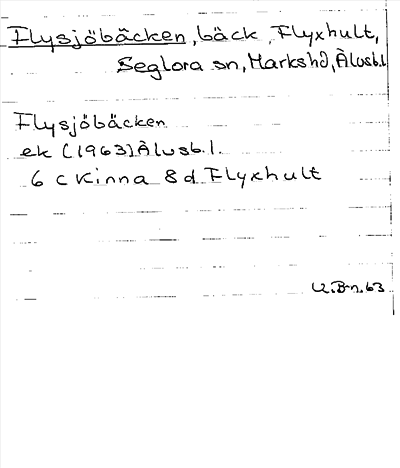 Flysjöbäcken, bäck, Flyxhult,
Seglora sn, Marks hd, Älvsb.l.
Flysjöbäcken
ek (1963) Älvsb.l.
6 c Kinna 8 d Flyxhult
U.B-n.63